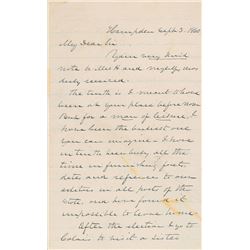 Hampden Sept 3. 1860
My Dear Sir
Your very kind
note
duly received.
The truth is I meant to have
been at your place before now
But for a man of leisure I
have been the busiest one
you can imagine. I have
in truth been busy all the
time in furnishing facts
dates and references to our
editors in all parts of the
State and have found it
impossible to leave home.
After the election I go to
Calais to visit a sister